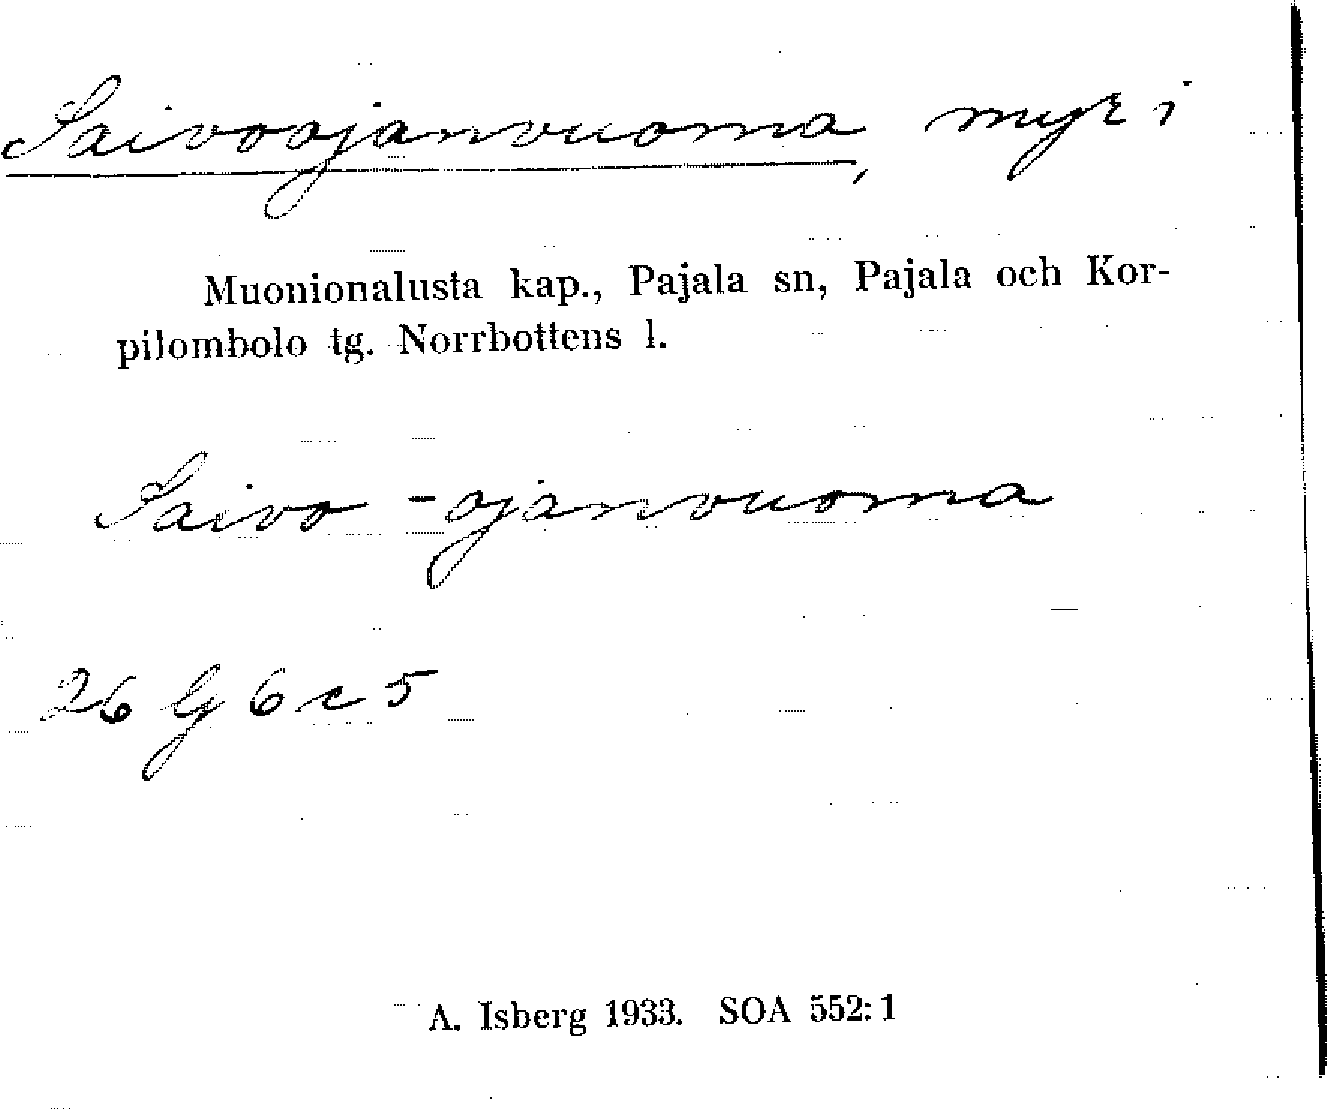 Saivoojanvuoma, myr i
Muonionalusta kap., Pajala sn, Pajala och Kor-
pilombolo tg. Norrbottens l.
Saivo -ojanvuoma
26 G 6 c 5
A. Isberg 1933. SOA 552:1